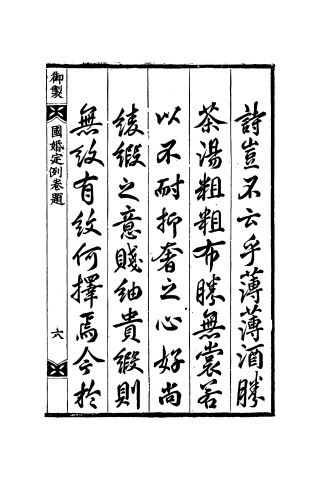 詩豈不云乎薄薄酒勝
茶湯粗粗布勝無裳若
以不耐抑奢之心好尚
綾緞之意賤紬貴緞則
無紋有紋何擇焉今於
御製
國婚定例卷題
六